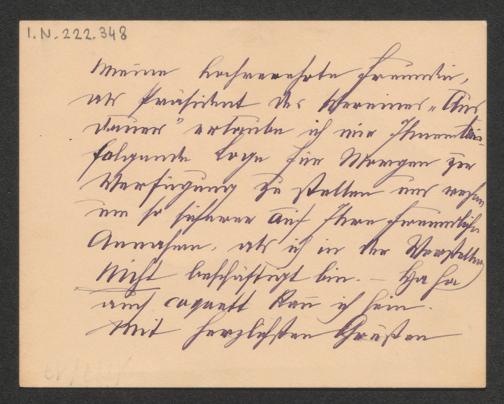 I.N. 222.348
Meine hochverehrte Freundin,
als Präsident des Vereines „Aus
dauer" erlaube ich mir Ihnen bei-
folgende Loge für Morgen zur
Verfügung zu stellen und rechne
um so sicherer auf Ihre freundliche
Annahme, als ich in der Vorstellung
nicht beschäftigt bin. — Ha ha
auch coquett kann ich sein.
Mit herzlichsten Grüßen